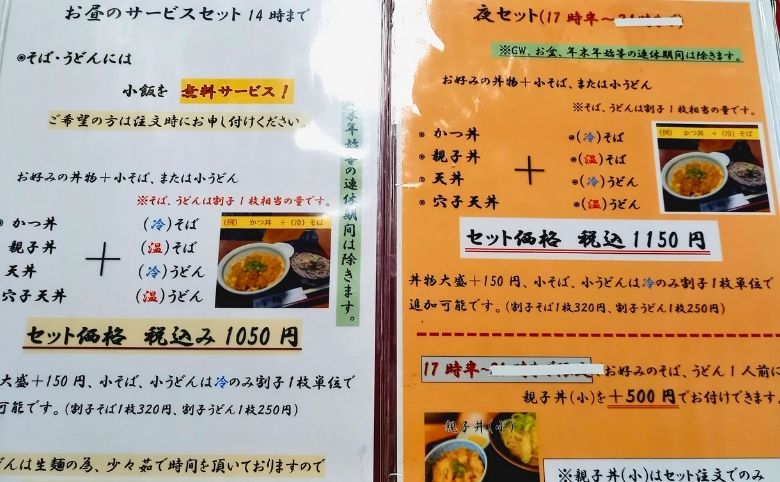 お昼のサービスセット 14時まで
◎そば・うどんには
小飯を 無料サービス！
ご希望の方は注文時にお申し付けください。
お好みの丼物＋小そば、または小うどん
※そば、うどんは割子1枚相当の量です。
かつ丼
親子丼
天丼
穴子天丼
＋
(冷)そば
(温)そば
(冷)うどん
(温)うどん
(例) かつ丼 ＋(冷)そば
セット価格 税込み1050円
大盛＋150円、小そば、小うどんは冷のみ割子1枚単位で
可能です。(割子そば1枚320円、割子うどん1枚250円)
どんは生麺の為、少々茹で時間を頂いておりますので
末年始等の連休期間は除きます。
夜セット(17時半～
※GW、お盆、年末年始等の連休期間は除きます。
お好みの丼物＋小そば、または小うどん
※そば、うどんは割子1枚相当の量です。
◎かつ丼
◎親子丼
◎天丼
◎穴子天丼
＋
◎(冷)そば
◎(温)そば
◎(冷)うどん
◎(温)うどん
(例) かつ丼 ＋(冷)そば
セット価格 税込1150円
丼物大盛＋150円、小そば、小うどんは冷のみ割子1枚単位で
追加可能です。(割子そば1枚320円、割子うどん1枚250円)
17時半～
お好みのそば、うどん1人前に
親子丼(小)を＋500円でお付けできます
親子丼(小)
※親子丼(小)はセット注文でのみ